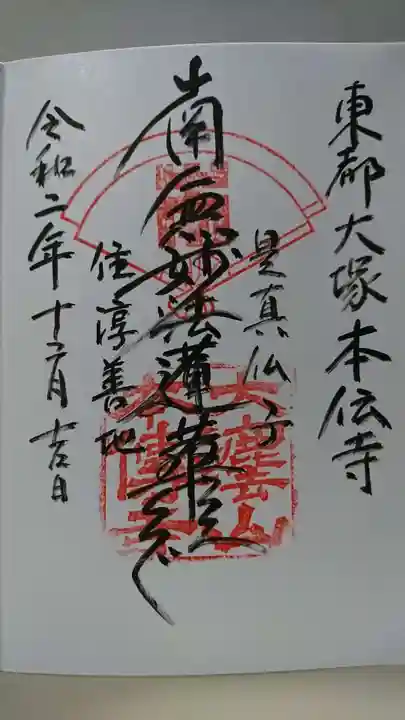 東都大塚本伝寺
是真仏子
南無妙法蓮華経
住淳善地
令和二年十二月吉日